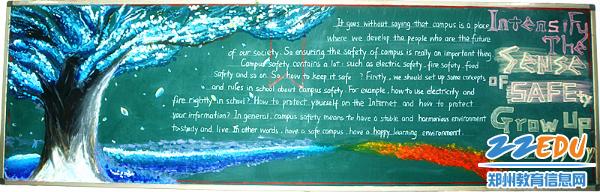 It goes without saying that campus is a place
where we develop the people who are the future
of our society. So ensuring the safety of campus is really an important thing
Campus safety contains a lot: such as electric safety, fire safety, food
Safety and so on. So how to keep it safe? Firstly, we should set up some concepts
and rules in school about campus safety. For example, how to use electricity and
fire rightly in school? How to protect yourself on the Internet and how to protect
your information? In general, campus safety means to have a stable and harmonious environment
to study and live. In other words, have a safe campus, have a happy learning environment.
Intensify
The
SENSE
of SAFEty
Grow Up
ZZEDU
郑州教育信息网